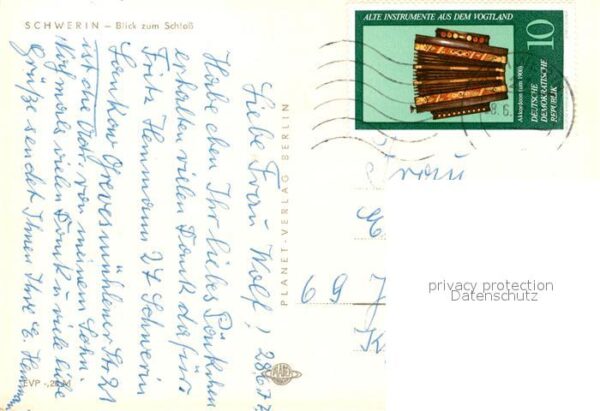 SCHWERIN – Blick zum Schloß
Liebe Frau Wolf! 28.6.7
Habe den Ihr liebes Päckchen
erhalten vielen Dank dafür
Fritz Hemmann 27 Schwerin
Lankow Grevesmühlener Str 21
ist die Adr. von meinem Sohn.
Nochmals vielen Dank u viele liebe
Grüße sendet Ihnen Ihre E. Hemmann
EVP -,20 M
PLANET-VERLAG BERLIN
PLANET
ALTE INSTRUMENTE AUS DEM VOGTLAND
10
Akkordeon (um 1900)
DEUTSCHE
DEMOKRATISCHE
REPUBLIK
Frau
M
69
K
privacy protection
Datenschutz